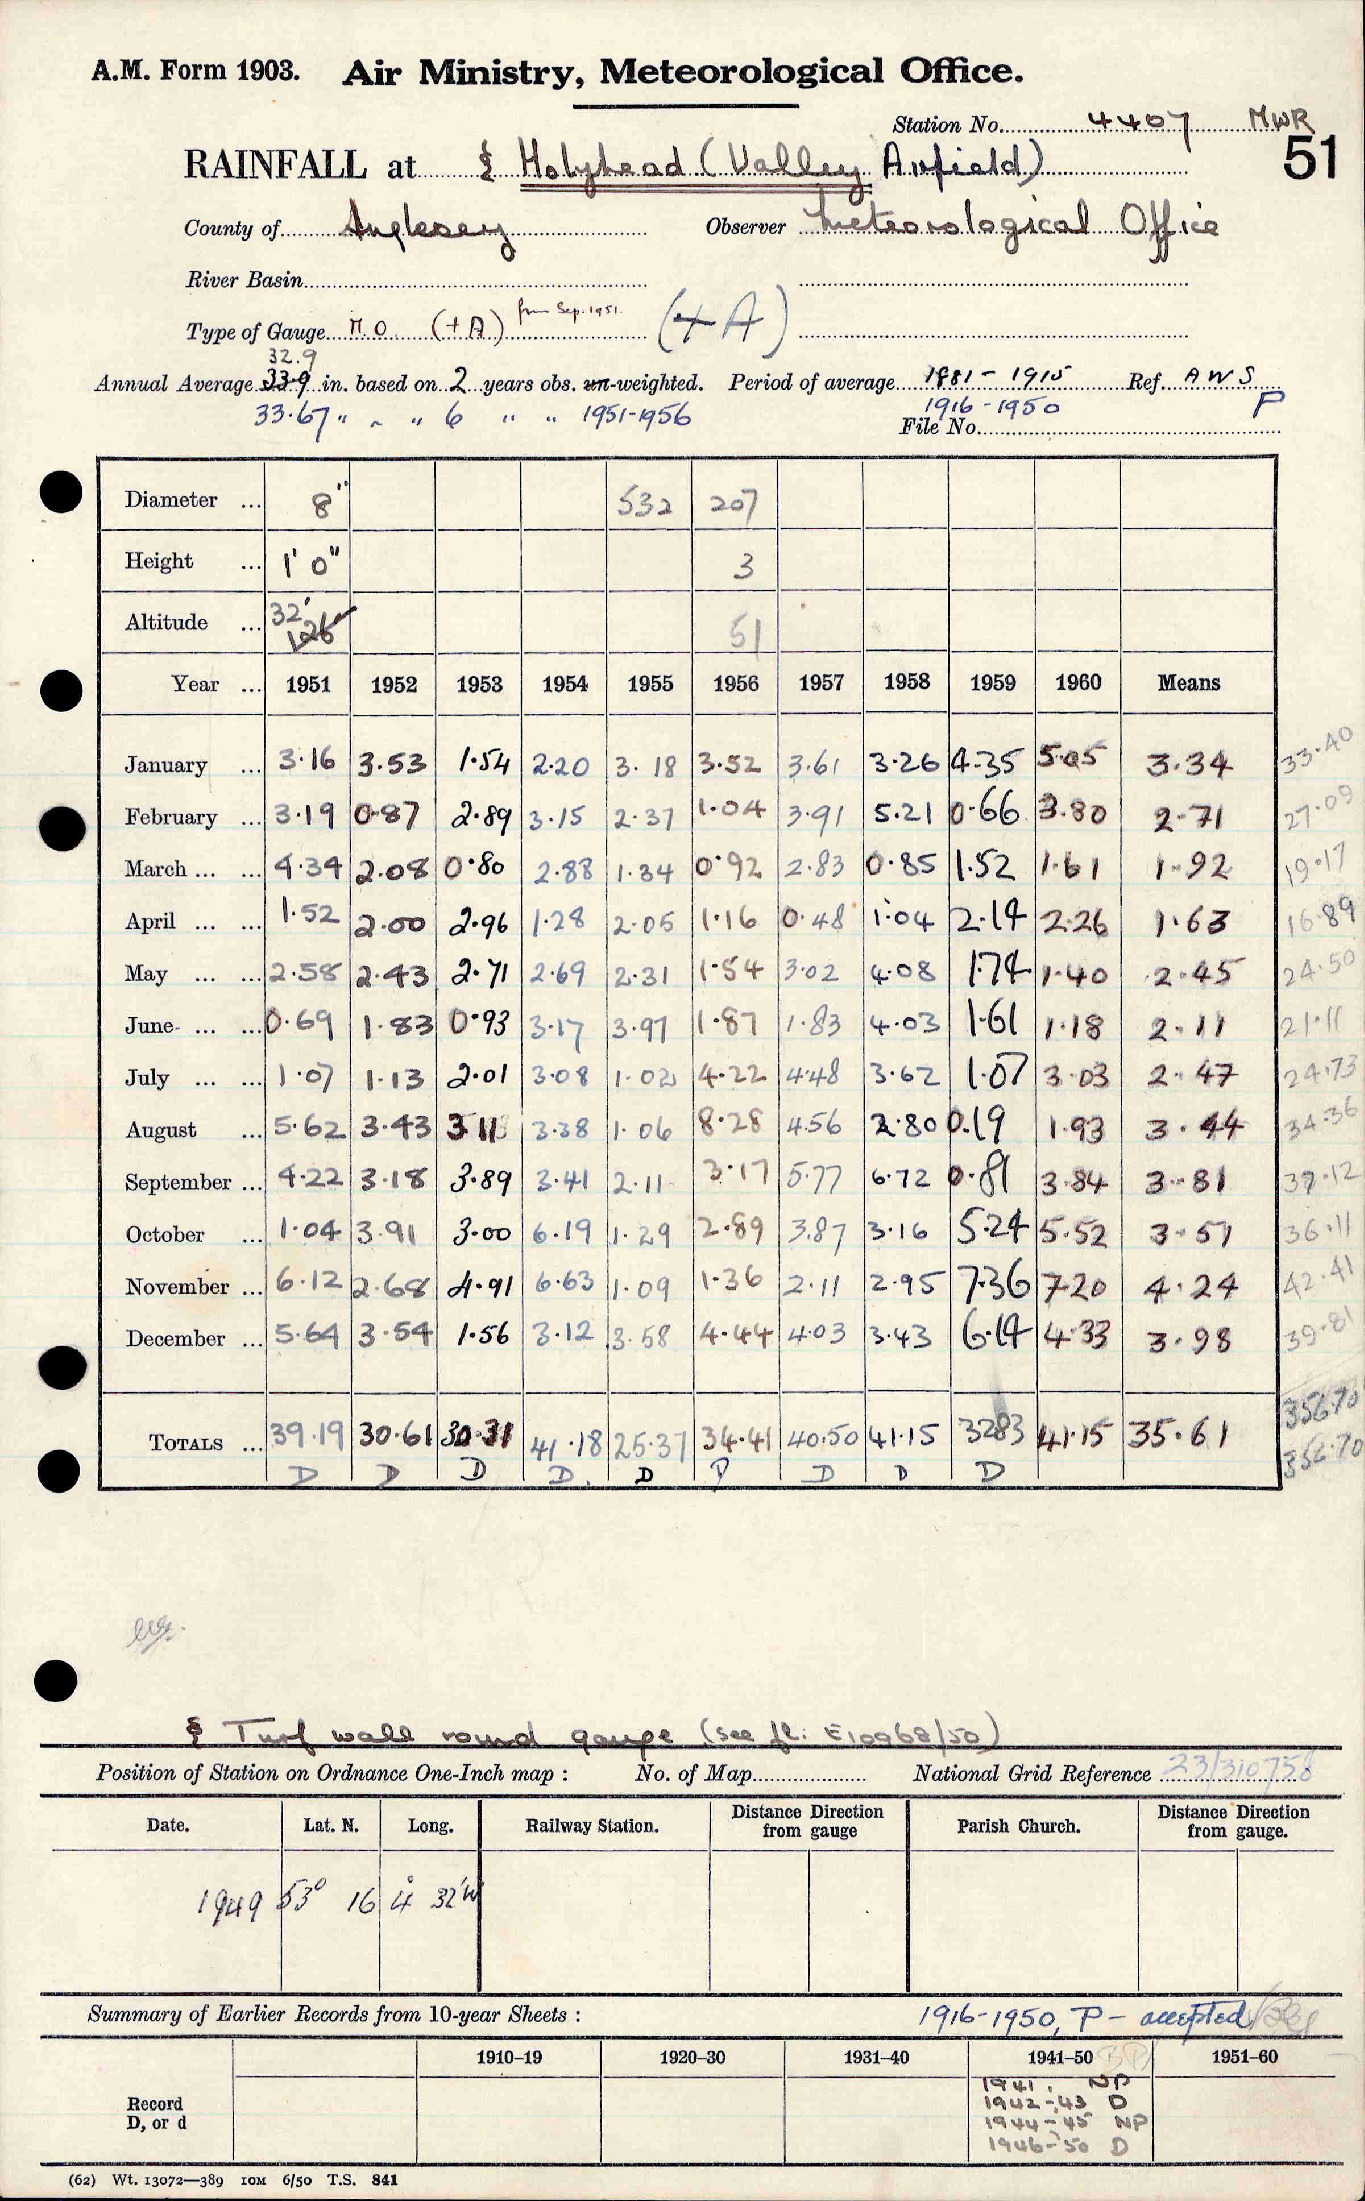 A.M. Form 1903. Air Ministry, Meteorological Office.
Station No. 4407 MWR
51
RAINFALL at § Holyhead (Valley Airfield)
County of Anglesey Observer Meteorological Office
River Basin
Type of Gauge M.O. (+A) from Sep. 1951. (+A)
32.9
Annual Average 33.9 in. based on 2 years obs. un-weighted. Period of average 1881 - 1915 Ref. AWS
33.67 " " " 6 " " 1951-1956 1916-1950 P
File No.
Diameter ... 8" 532 207
Height ... 1' 0" 3
Altitude ... 32' 126' 51
Year ... 1951 1952 1953 1954 1955 1956 1957 1958 1959 1960 Means
January ... 3.16 3.53 1.54 2.20 3.18 3.52 3.61 3.26 4.35 5.05 3.34 33.40
February ... 3.19 0.87 2.89 3.15 2.37 1.04 3.91 5.21 0.66 3.80 2.71 27.09
March ... ... 4.34 2.08 0.80 2.88 1.34 0.92 2.83 0.85 1.52 1.61 1.92 19.17
April ... ... 1.52 2.00 2.96 1.28 2.05 1.16 0.48 1.04 2.14 2.26 1.63 16.89
May ... ... 2.58 2.43 2.71 2.69 2.31 1.54 3.02 4.08 1.74 1.40 2.45 24.50
June ... ... 0.69 1.83 0.93 3.17 3.97 1.87 1.83 4.03 1.61 1.18 2.11 21.11
July ... ... 1.07 1.13 2.01 3.08 1.02 4.22 4.48 3.62 1.07 3.03 2.47 24.73
August ... 5.62 3.43 3.11 3.38 1.06 8.28 4.56 2.80 0.19 1.93 3.44 34.36
September ... 4.22 3.18 3.89 3.41 2.11 3.17 5.77 6.72 0.81 3.84 3.81 37.12
October ... 1.04 3.91 3.00 6.19 1.29 2.89 3.87 3.16 5.24 5.52 3.51 36.11
November ... 6.12 2.68 4.91 6.63 1.09 1.36 2.11 2.95 7.36 7.20 4.24 42.41
December ... 5.64 3.54 1.56 3.12 3.58 4.44 4.03 3.43 6.14 4.33 3.98 39.81
356.70
TOTALS ... 39.19 30.61 30.31 41.18 25.37 34.41 40.50 41.15 32.83 41.15 35.61 356.70
D D D D. D P D D D
§ Turf wall round gauge (see fl: E10968/50)
Position of Station on Ordnance One-Inch map : No. of Map National Grid Reference 23/310758
Date. Lat. N. Long. Railway Station. Distance Direction from gauge Parish Church. Distance Direction from gauge.
1949 53° 16 4° 32'W
Summary of Earlier Records from 10-year Sheets : 1916-1950, P - accepted
1910–19 1920–30 1931–40 1941–50 1951–60
Record D, or d
1941. NP
1942-43 D
1944-45 NP
1946-50 D
(62) Wt. 13072—389 10M 6/50 T.S. 841